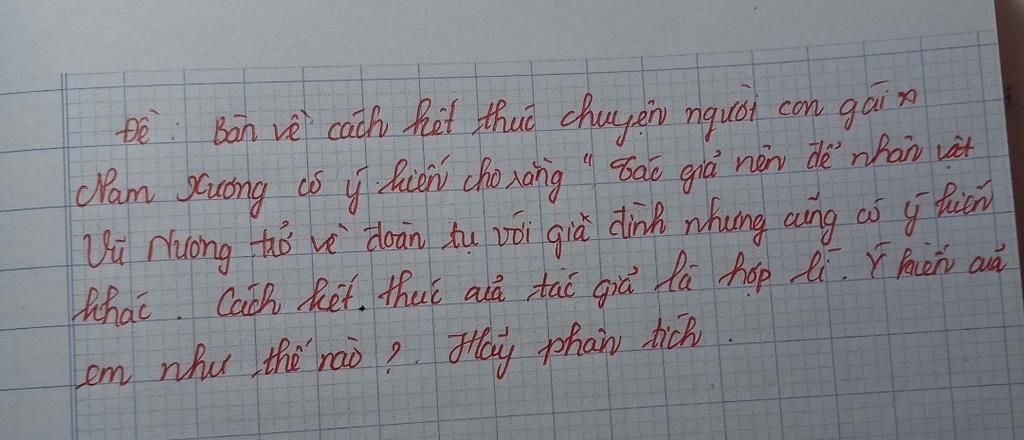 Đề: Bàn về cách kết thúc chuyện người con gái
Nam Xương có ý kiến cho rằng "Tác giả nên để nhân vật
Vũ Nương trở về đoàn tụ với gia đình nhưng cũng có ý kiến
khác. Cách kết thúc của tác giả là hợp lí. Ý kiến của
em như thế nào? Hãy phân tích.